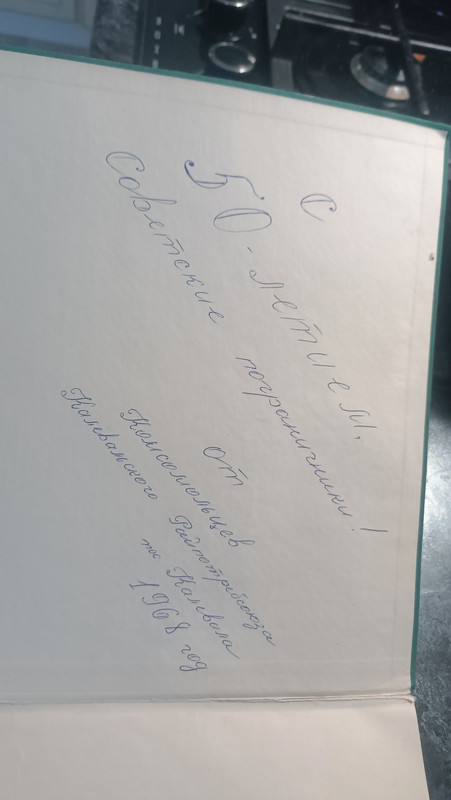 С
50-летием,
Советские пограничники!
от
Комсомольцев
Калевальского Райпотребсоюза
пос Калевала
1968 год